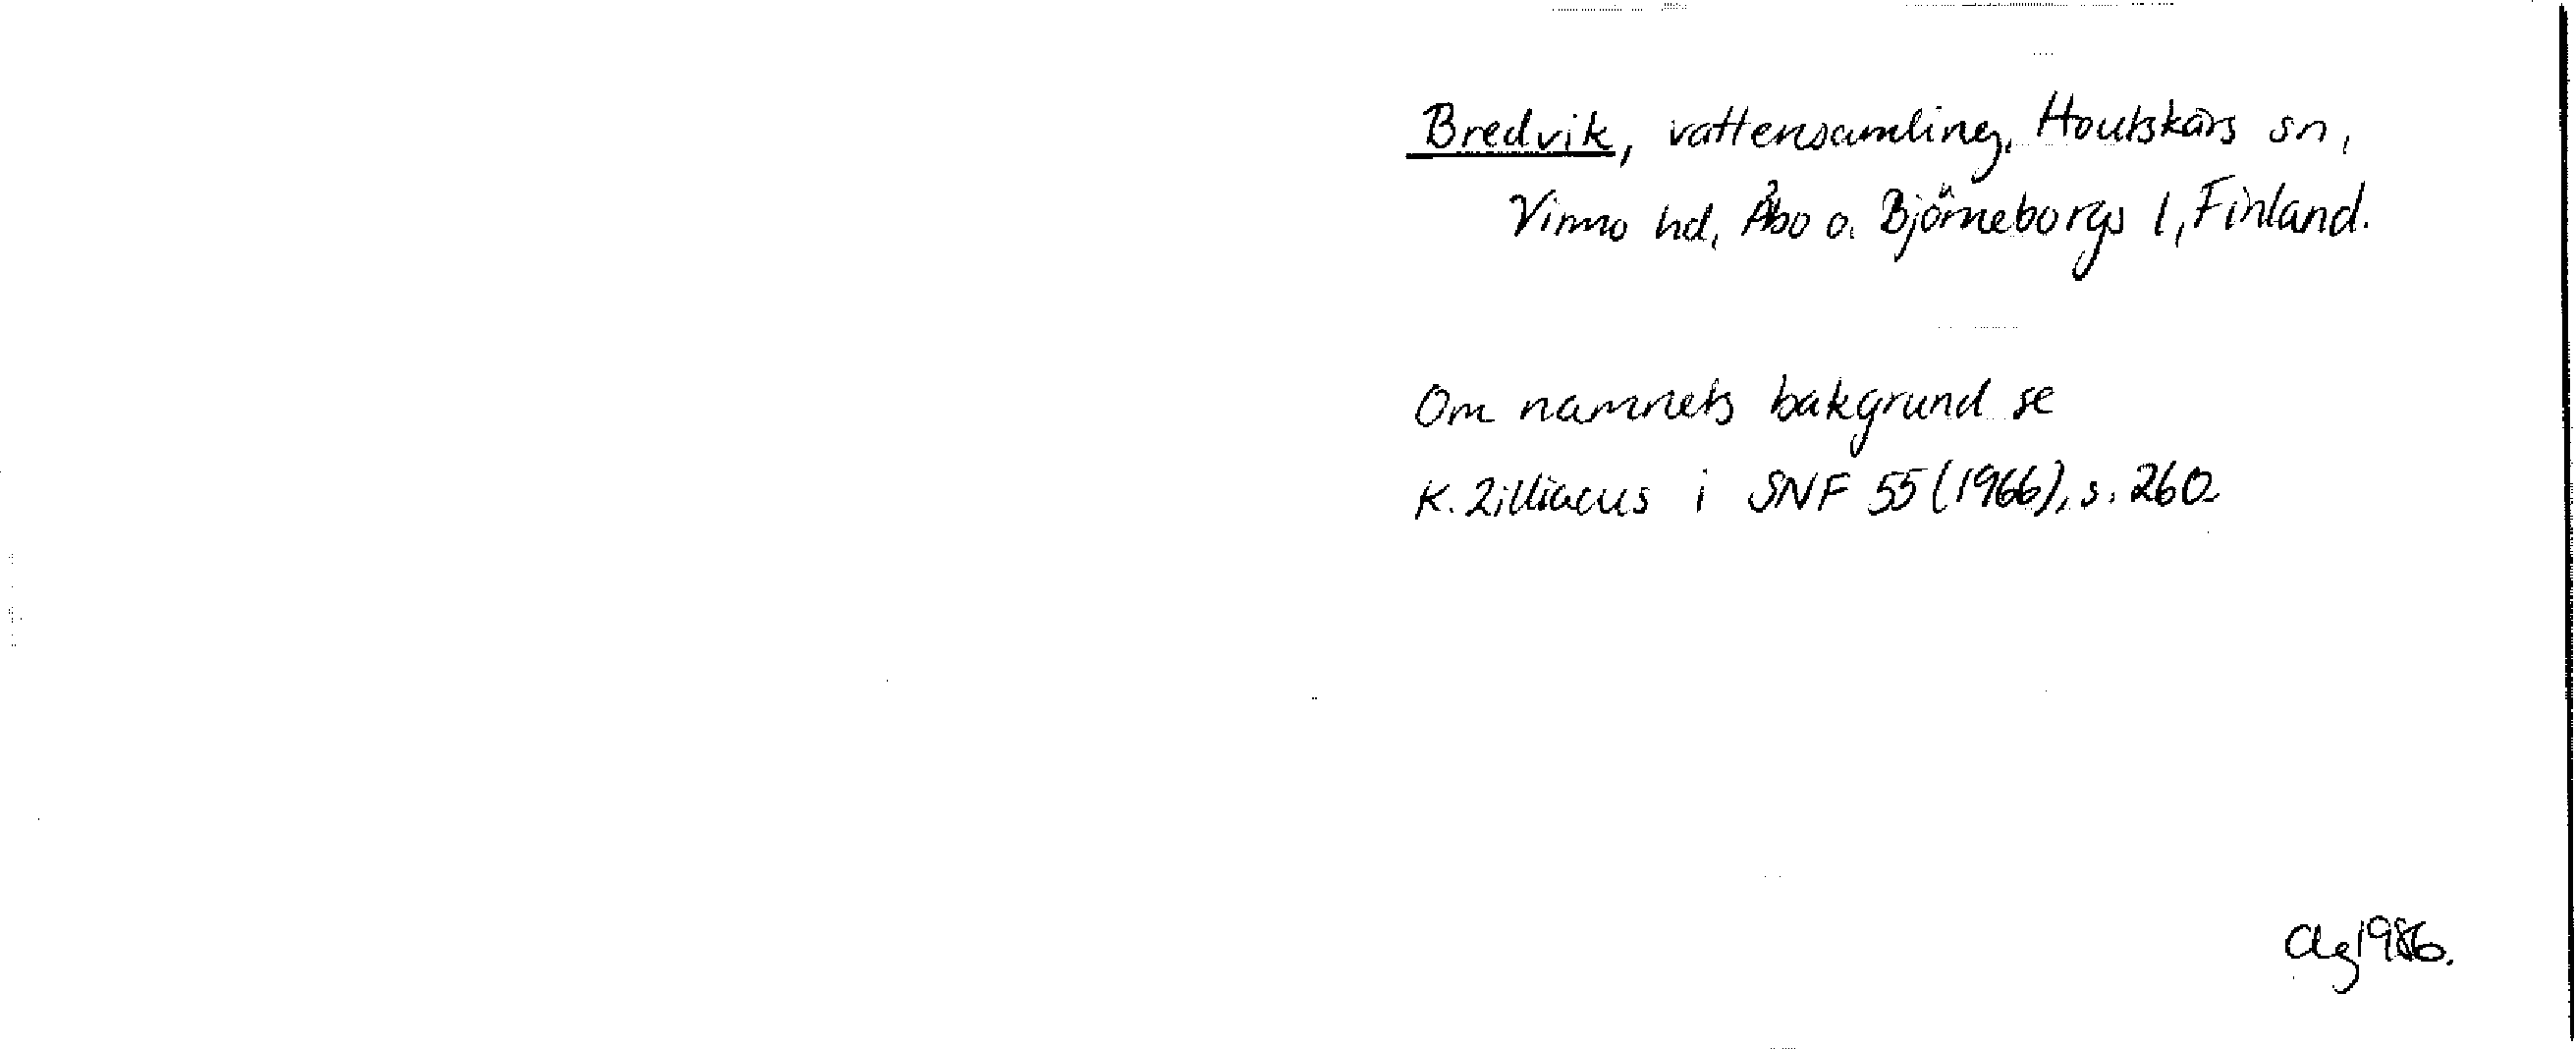 Bredvik, vattensamling, Houtskärs sn,
Virmo hd, Åbo o. Björneborgs l, Finland.
Om namnets bakgrund se
K. Zilliacus i SNF 55 (1966), s. 260.
1986.